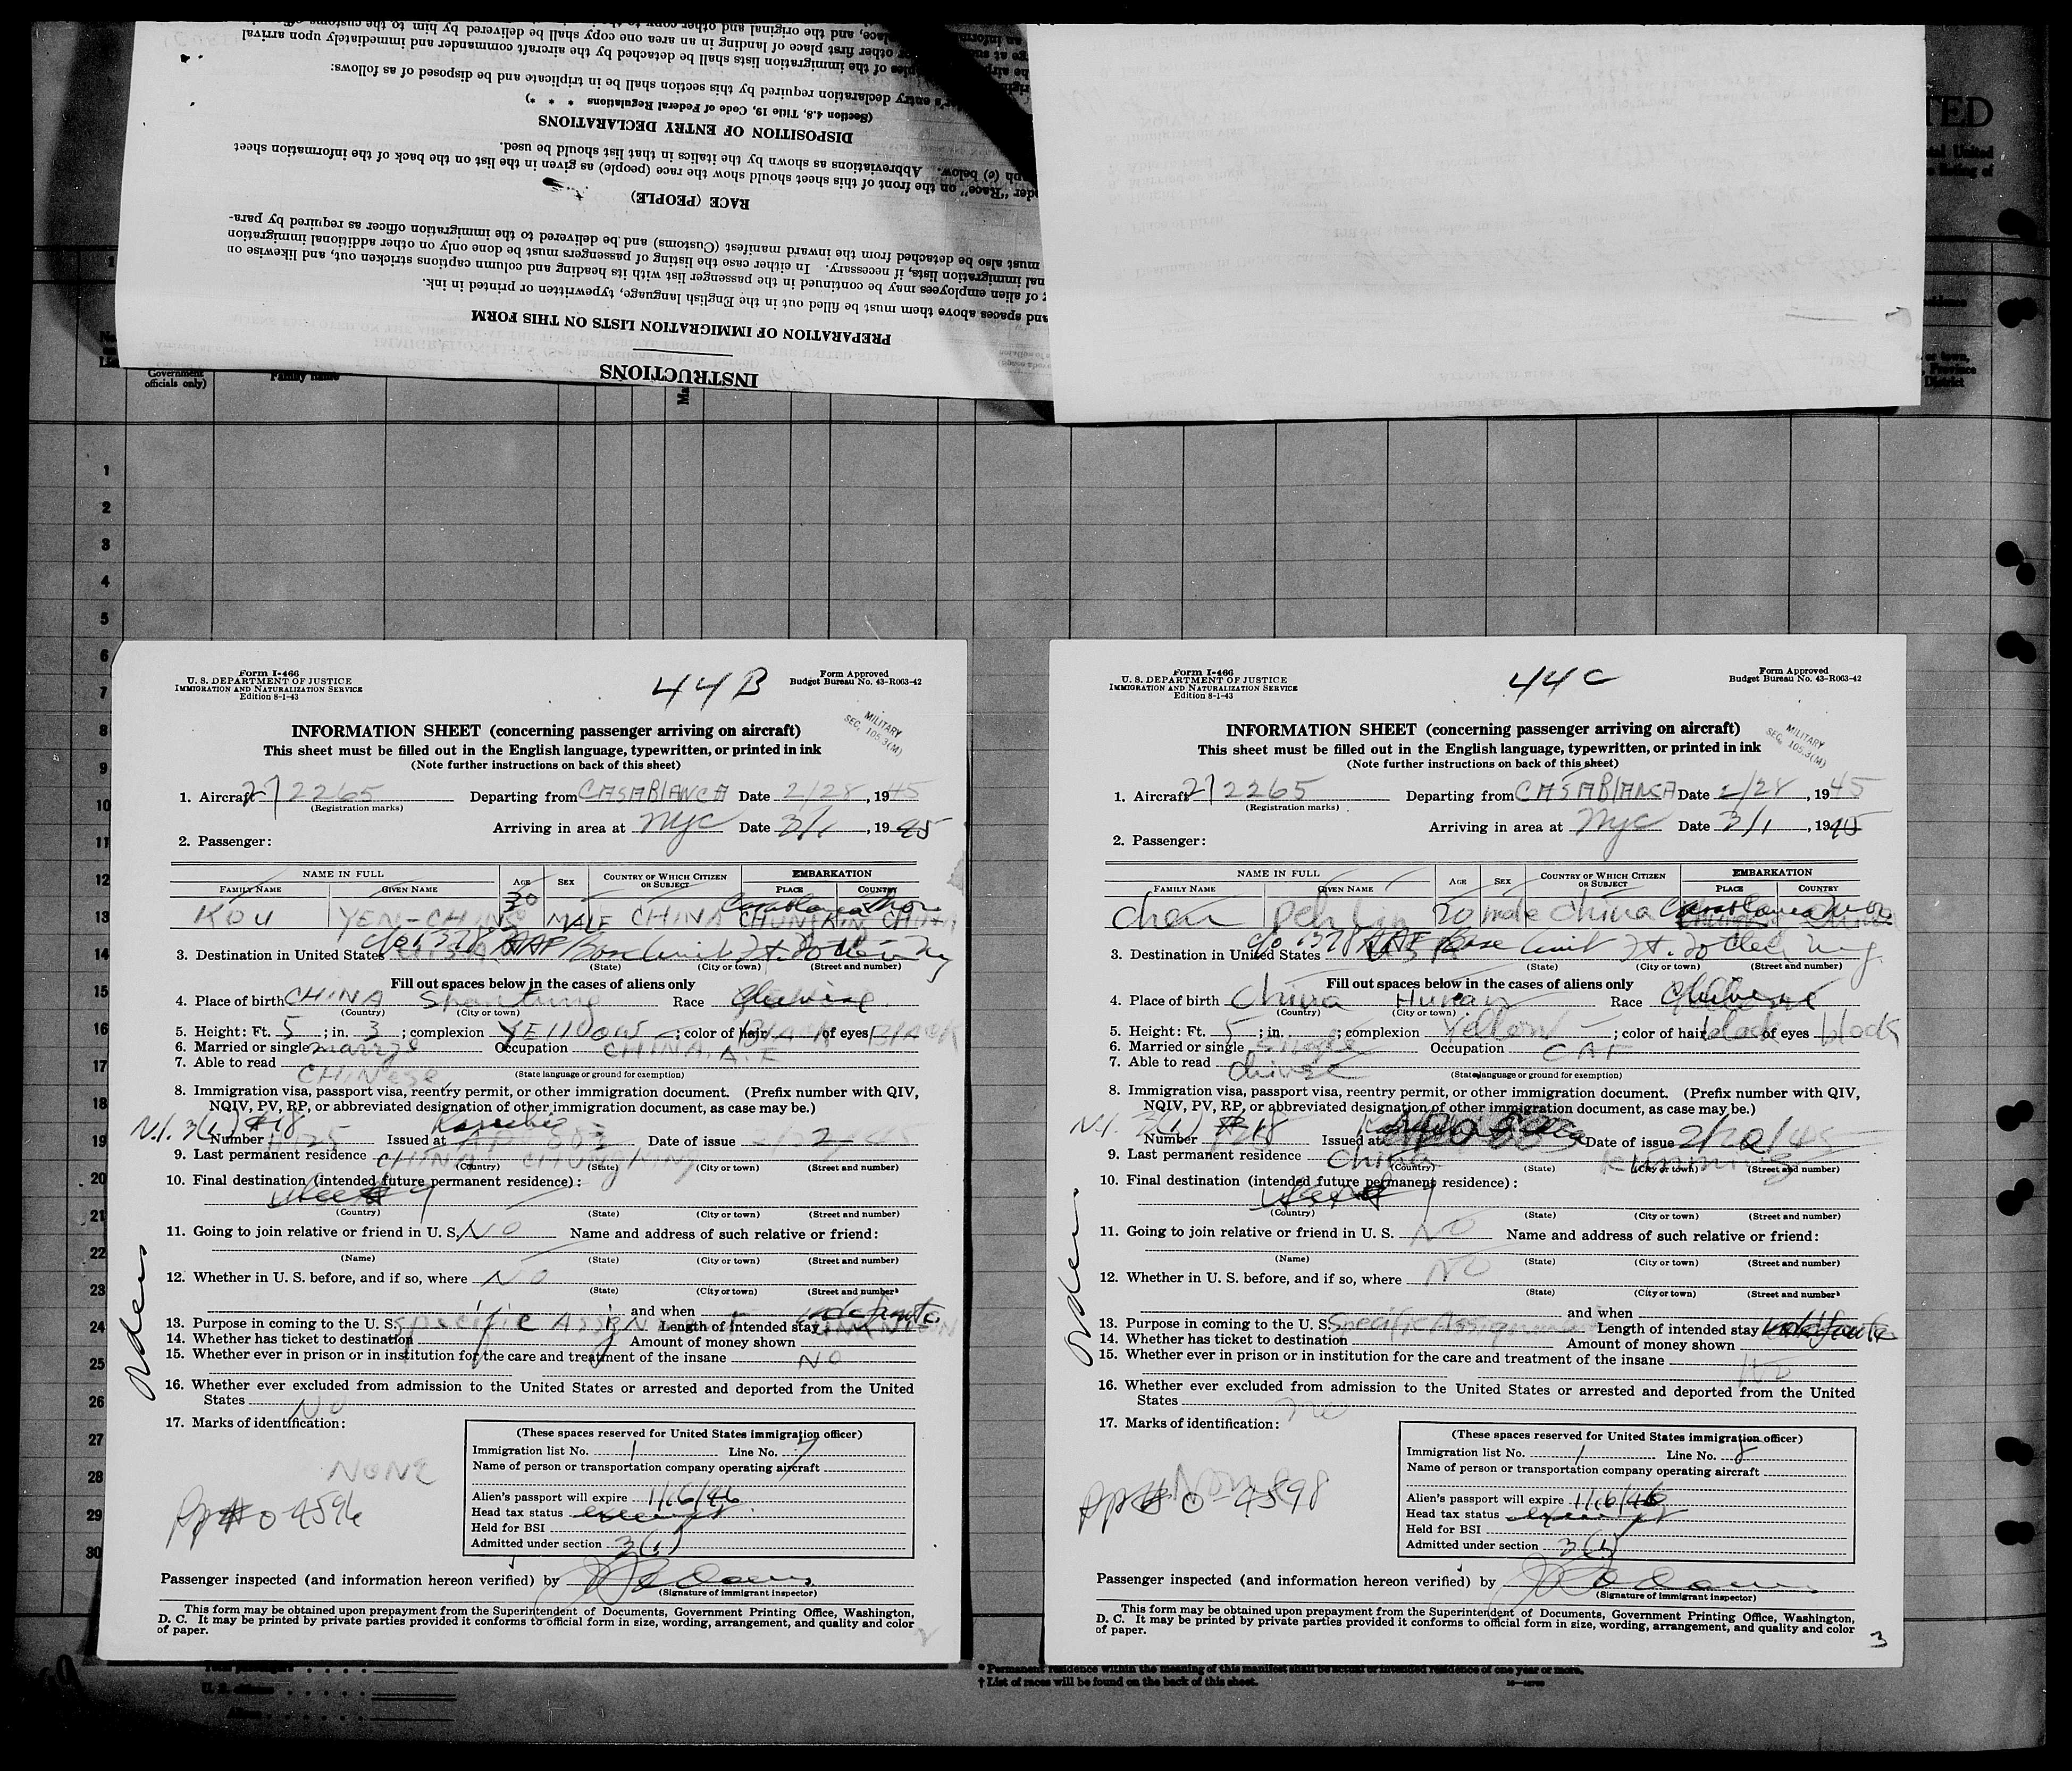 an inform place, and the original and other copy to the
or other first place of landing in an area one copy shall be delivered by him to the customs
ples of the immigration lists shall be detached by the aircraft commander and immediately upon arrival
entry declaration required by this section shall be in triplicate and be disposed of as follows:
(Section 4.8, Title 19, Code of Federal Regulations * * *)
DISPOSITION OF ENTRY DECLARATIONS
below. Abbreviations as shown by the italics in that list should be used.
"Race," on the front of this sheet should show the race (people) as given in the list on the back of the information sheet
RACE (PEOPLE)
must also be detached from the inward manifest (Customs) and be delivered to the immigration officer as required by para-
nal immigration lists, if necessary. In either case the listing of passengers must be done only on other additional immigration
of alien employees may be continued in the passenger list with its heading and column captions stricken out, and likewise on
and spaces above them must be filled out in the English language, typewritten or printed in ink.
PREPARATION OF IMMIGRATION LISTS ON THIS FORM
INSTRUCTIONS
TED
Government
officials only)
Family name
or town,
Province
District
1
2
3
4
5
6
7
8
9
10
11
12
13
14
15
16
17
18
19
20
21
22
23
24
25
26
27
28
29
30
Form I-466
U. S. DEPARTMENT OF JUSTICE
IMMIGRATION AND NATURALIZATION SERVICE
Edition 8-1-43
44B
Form Approved
Budget Bureau No. 43-R063-42
MILITARY
SEC. 105.3(M)
INFORMATION SHEET (concerning passenger arriving on aircraft)
This sheet must be filled out in the English language, typewritten, or printed in ink
(Note further instructions on back of this sheet)
1. Aircraft 272265 Departing from CASABIANCA Date 2/28, 1945
(Registration marks)
Arriving in area at NYC Date 3/1, 1945
2. Passenger:
NAME IN FULL AGE SEX COUNTRY OF WHICH CITIZEN OR SUBJECT EMBARKATION
FAMILY NAME GIVEN NAME PLACE COUNTRY
30 Casablanca
KOU YEN-CHING MALE CHINA CHUNGKIN CHINA
3. Destination in United States c/o 1378 AAF Base Unit
(State) (City or town) (Street and number)
Fill out spaces below in the cases of aliens only
4. Place of birth CHINA Shantung Race Chinese
(Country) (City or town)
5. Height: Ft. 5; in. 3; complexion YEllOW; color of hair BlACK of eyes BlACK
6. Married or single Occupation CHINA. A. F
7. Able to read CHINese
(State language or ground for exemption)
8. Immigration visa, passport visa, reentry permit, or other immigration document. (Prefix number with QIV,
NQIV, PV, RP, or abbreviated designation of other immigration document, as case may be.)
N.I. 3(1) #18 Karachi
Number Issued at Date of issue
9. Last permanent residence CHINA CHUNGKING
(Country) (State) (City or town) (Street and number)
10. Final destination (intended future permanent residence):
(Country) (State) (City or town) (Street and number)
11. Going to join relative or friend in U. S. NO Name and address of such relative or friend:
(Name) (State) (City or town) (Street and number)
12. Whether in U. S. before, and if so, where NO
(State) (City or town) (Street and number)
and when
13. Purpose in coming to the U. S. specific Assign Length of intended stay indefinite
14. Whether has ticket to destination Amount of money shown
15. Whether ever in prison or in institution for the care and treatment of the insane NO
16. Whether ever excluded from admission to the United States or arrested and deported from the United
States NO
17. Marks of identification:
NONE
Pp# 0-4596
Orders
(These spaces reserved for United States immigration officer)
Immigration list No. 1 Line No. 7
Name of person or transportation company operating aircraft
Alien's passport will expire 1/16/46
Head tax status exempt
Held for BSI
Admitted under section 3(1)
Passenger inspected (and information hereon verified) by
(Signature of immigrant inspector)
This form may be obtained upon prepayment from the Superintendent of Documents, Government Printing Office, Washington,
D. C. It may be printed by private parties provided it conforms to official form in size, wording, arrangement, and quality and color
of paper.
2
Form I-466
U. S. DEPARTMENT OF JUSTICE
IMMIGRATION AND NATURALIZATION SERVICE
Edition 8-1-43
44C
Form Approved
Budget Bureau No. 43-R063-42
MILITARY
SEC. 105.3(M)
INFORMATION SHEET (concerning passenger arriving on aircraft)
This sheet must be filled out in the English language, typewritten, or printed in ink
(Note further instructions on back of this sheet)
1. Aircraft 272265 Departing from CASABIANCA Date 2/28, 1945
(Registration marks)
Arriving in area at NYC Date 3/1, 1945
2. Passenger:
NAME IN FULL AGE SEX COUNTRY OF WHICH CITIZEN OR SUBJECT EMBARKATION
FAMILY NAME GIVEN NAME PLACE COUNTRY
chen Peh lin 20 male china Casablanca
3. Destination in United States c/o 1378 AAF Base Unit
(State) (City or town) (Street and number)
Fill out spaces below in the cases of aliens only
4. Place of birth China Hunan Race Chinese
(Country) (City or town)
5. Height: Ft. 5; in.; complexion Yellow; color of hair black of eyes black
6. Married or single Single Occupation CAF
7. Able to read chinese
(State language or ground for exemption)
8. Immigration visa, passport visa, reentry permit, or other immigration document. (Prefix number with QIV,
NQIV, PV, RP, or abbreviated designation of other immigration document, as case may be.)
N.I. 3(1) #18
Number Issued at Date of issue 2/20/45
9. Last permanent residence China Kunming
(Country) (State) (City or town) (Street and number)
10. Final destination (intended future permanent residence):
(Country) (State) (City or town) (Street and number)
11. Going to join relative or friend in U. S. NO Name and address of such relative or friend:
(Name) (State) (City or town) (Street and number)
12. Whether in U. S. before, and if so, where NO
(State) (City or town) (Street and number)
and when
13. Purpose in coming to the U. S. Specific Assignment Length of intended stay indefinite
14. Whether has ticket to destination Amount of money shown
15. Whether ever in prison or in institution for the care and treatment of the insane NO
16. Whether ever excluded from admission to the United States or arrested and deported from the United
States no
17. Marks of identification:
None
Pp# 0-4898
Orders
(These spaces reserved for United States immigration officer)
Immigration list No. 1 Line No. 8
Name of person or transportation company operating aircraft
Alien's passport will expire 1/16/46
Head tax status exempt
Held for BSI
Admitted under section 3(1)
Passenger inspected (and information hereon verified) by
(Signature of immigrant inspector)
This form may be obtained upon prepayment from the Superintendent of Documents, Government Printing Office, Washington,
D. C. It may be printed by private parties provided it conforms to official form in size, wording, arrangement, and quality and color
of paper.
3
* Permanent residence within the meaning of this manifest shall be actual or intended residence of one year or more.
† List of races will be found on the back of this sheet.